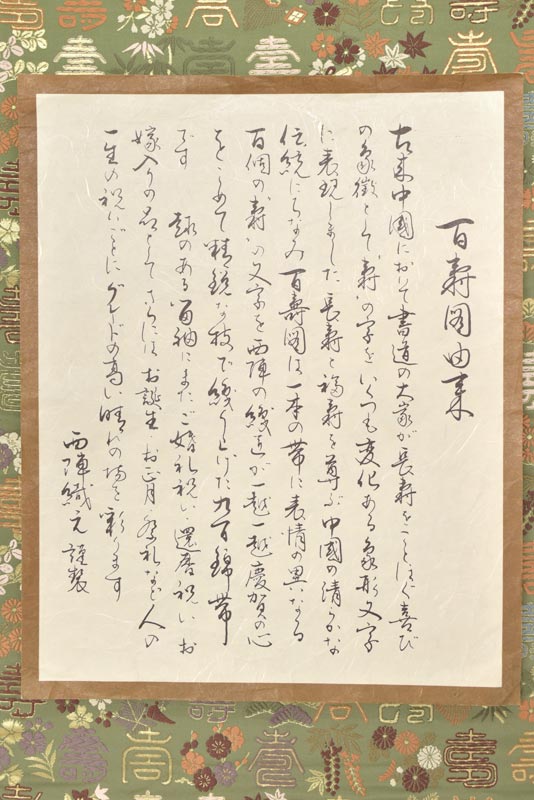 百寿図由来
古来中國において書道の大家が長寿をことほぐ喜び
の象徴として“寿”の字をいくつも変化ある象形文字
に表現しました 長寿と福寿を尊ぶ中國の清らかな
伝統にちなみ 百壽図は一本の帯に表情の異なる
百個の“寿”の文字を西陣の織匠が一越一越慶賀の心
をこめて精鋭な技で織り上げた九百錦帯
です 趣のある留袖にまたご婚礼祝い 還暦祝い お
嫁入りの品として さらには お誕生 お正月 祭礼など人の
一生の祝いごとにグレードの高い晴れの場を彩ります
西陣織元謹製